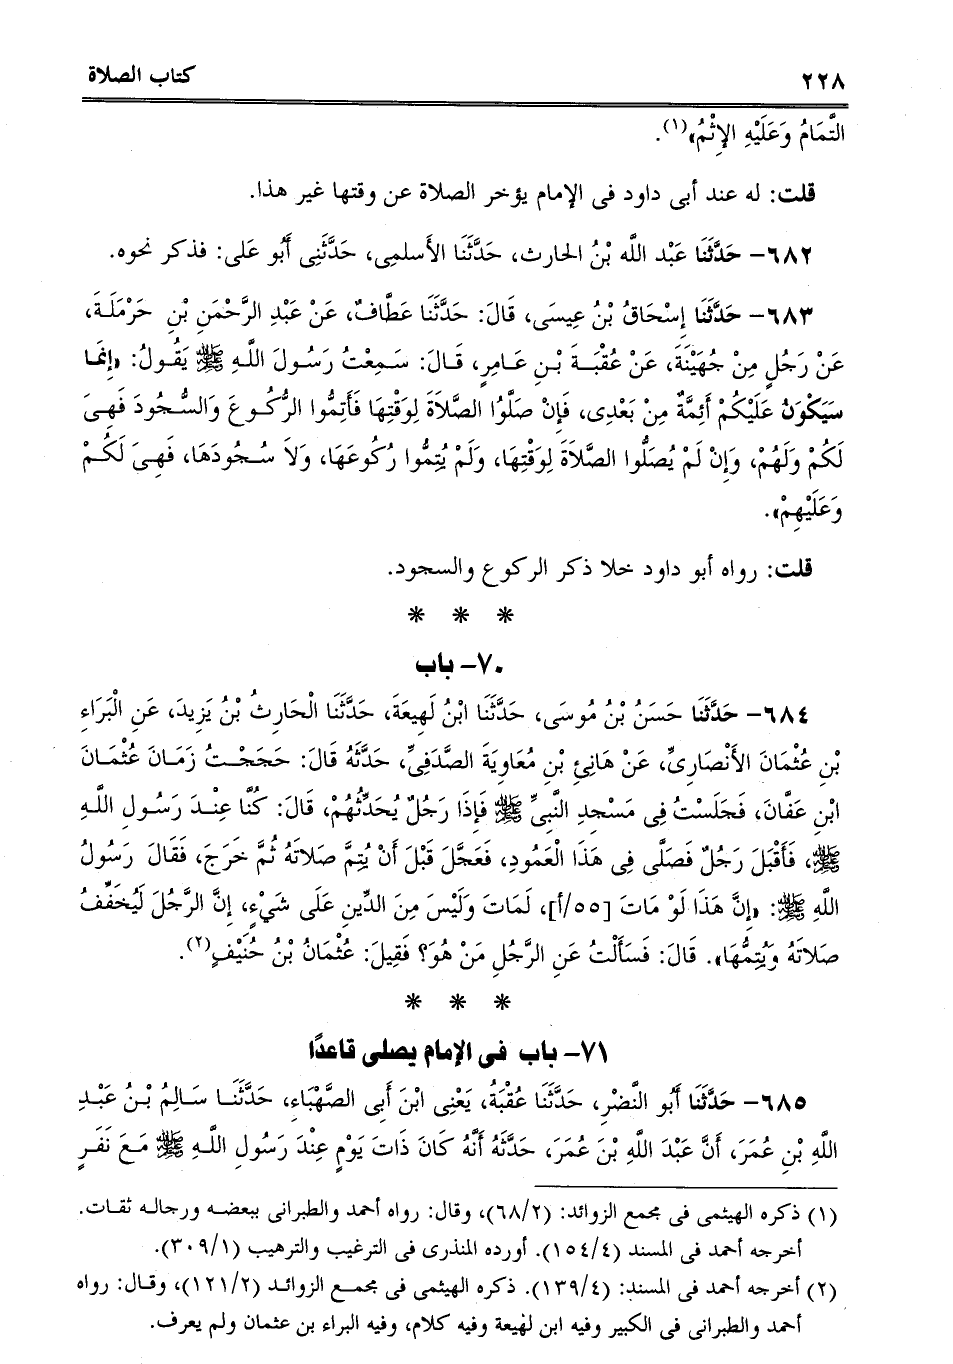 ٢٢٨ كتاب الصلاة
التَّمَامُ وَعَلَيْهِ الإِثْمُ»(١).
قلت: له عند أبى داود فى الإمام يؤخر الصلاة عن وقتها غير هذا.
٦٨٢- حَدَّثَنَا عَبْد اللَّه بْنُ الحارث، حَدَّثَنَا الأسلمى، حَدَّثَنِى أَبُو عَلى: فذكر نحوه.
٦٨٣- حَدَّثَنَا إِسْحَاقُ بْنُ عِيسَى، قَالَ: حَدَّثَنَا عَطَّافٌ، عَنْ عَبْدِ الرَّحْمَنِ بْنِ حَرْمَلَةَ،
عَنْ رَجُلٍ مِنْ جُهَيْنَةَ، عَنْ عُقْبَةَ بْنِ عَامِرٍ، قَالَ: سَمِعْتُ رَسُولَ اللَّهِ ﷺ يَقُولُ: «إِنَّمَا
سَيَكُونَ عَلَيْكُمْ أَئِمَّةٌ مِنْ بَعْدِى، فَإِنْ صَلَّوُا الصَّلاَةَ لِوَقْتِهَا فَأَتِمُّوا الرُّكُوعَ وَالسُّجُودَ فَهِىَ
لَكُمْ وَلَهُمْ، وَإِنْ لَمْ يُصَلُّوا الصَّلاَةَ لِوَقْتِهَا، وَلَمْ يُتِمُّوا رُكُوعَهَا، وَلاَ سُجُودَهَا، فَهِىَ لَكُمْ
وَعَلَيْهِمْ».
قلت: رواه أبو داود خلا ذكر الركوع والسجود.
* * *
٧٠- باب
٦٨٤- حَدَّثَنَا حَسَنُ بْنُ مُوسَى، حَدَّثَنَا ابْنُ لَهِيعَةَ، حَدَّثَنَا الْحَارِثُ بْنُ يَزِيدَ، عَنِ الْبَرَاءِ
بْنِ عُثْمَانَ الأَنْصَارِىِّ، عَنْ هَانِئِ بْنِ مُعَاوِيَةَ الصَّدَفِىِّ، حَدَّثَهُ قَالَ: حَجَجْتُ زَمَانَ عُثْمَانَ
ابْنِ عَفَّانَ، فَجَلَسْتُ فِى مَسْجِدِ النَّبِىِّ ﷺ فَإِذَا رَجُلٌ يُحَدِّثُهُمْ، قَالَ: كُنَّا عِنْدَ رَسُولِ اللَّهِ
ﷺ، فَأَقْبَلَ رَجُلٌ فَصَلَّى فِى هَذَا الْعَمُودِ، فَعَجَّلَ قَبْلَ أَنْ يُتِمَّ صَلاَتَهُ ثُمَّ خَرَجَ، فَقَالَ رَسُولُ
اللَّهِ ﷺ: «إِنَّ هَذَا لَوْ مَاتَ [٥٥/أ]، لَمَاتَ وَلَيْسَ مِنَ الدِّينِ عَلَى شَىْءٍ، إِنَّ الرَّجُلَ لَيُخَفِّفُ
صَلاَتَهُ وَيُتِمُّهَا». قَالَ: فَسَأَلْتُ عَنِ الرَّجُلِ مَنْ هُوَ؟ فَقِيلَ: عُثْمَانُ بْنُ حُنَيْفٍ(٢).
* * *
٧١- باب فى الإمام يصلى قاعدًا
٦٨٥- حَدَّثَنَا أَبُو النَّضْرِ، حَدَّثَنَا عُقْبَةُ، يَعْنِى ابْنَ أَبِى الصَّهْبَاءِ، حَدَّثَنَا سَالِمُ بْنُ عَبْدِ
اللَّهِ بْنِ عُمَرَ، أَنَّ عَبْدَ اللَّهِ بْنَ عُمَرَ، حَدَّثَهُ أَنَّهُ كَانَ ذَاتَ يَوْمٍ عِنْدَ رَسُولِ اللَّهِ ﷺ مَعَ نَفَرٍ
(١) ذكره الهيثمى فى مجمع الزوائد: (٦٨/٢)، وقال: رواه أحمد والطبرانى ببعضه ورجاله ثقات.
أخرجه أحمد فى المسند (١٥٤/٤). أورده المنذرى فى الترغيب والترهيب (٣٠٩/١).
(٢) أخرجه أحمد فى المسند: (١٣٩/٤). ذكره الهيثمى فى مجمع الزوائد (١٢١/٢)، وقال: رواه
أحمد والطبرانى فى الكبير وفيه ابن لهيعة وفيه كلام، وفيه البراء بن عثمان ولم يعرف.